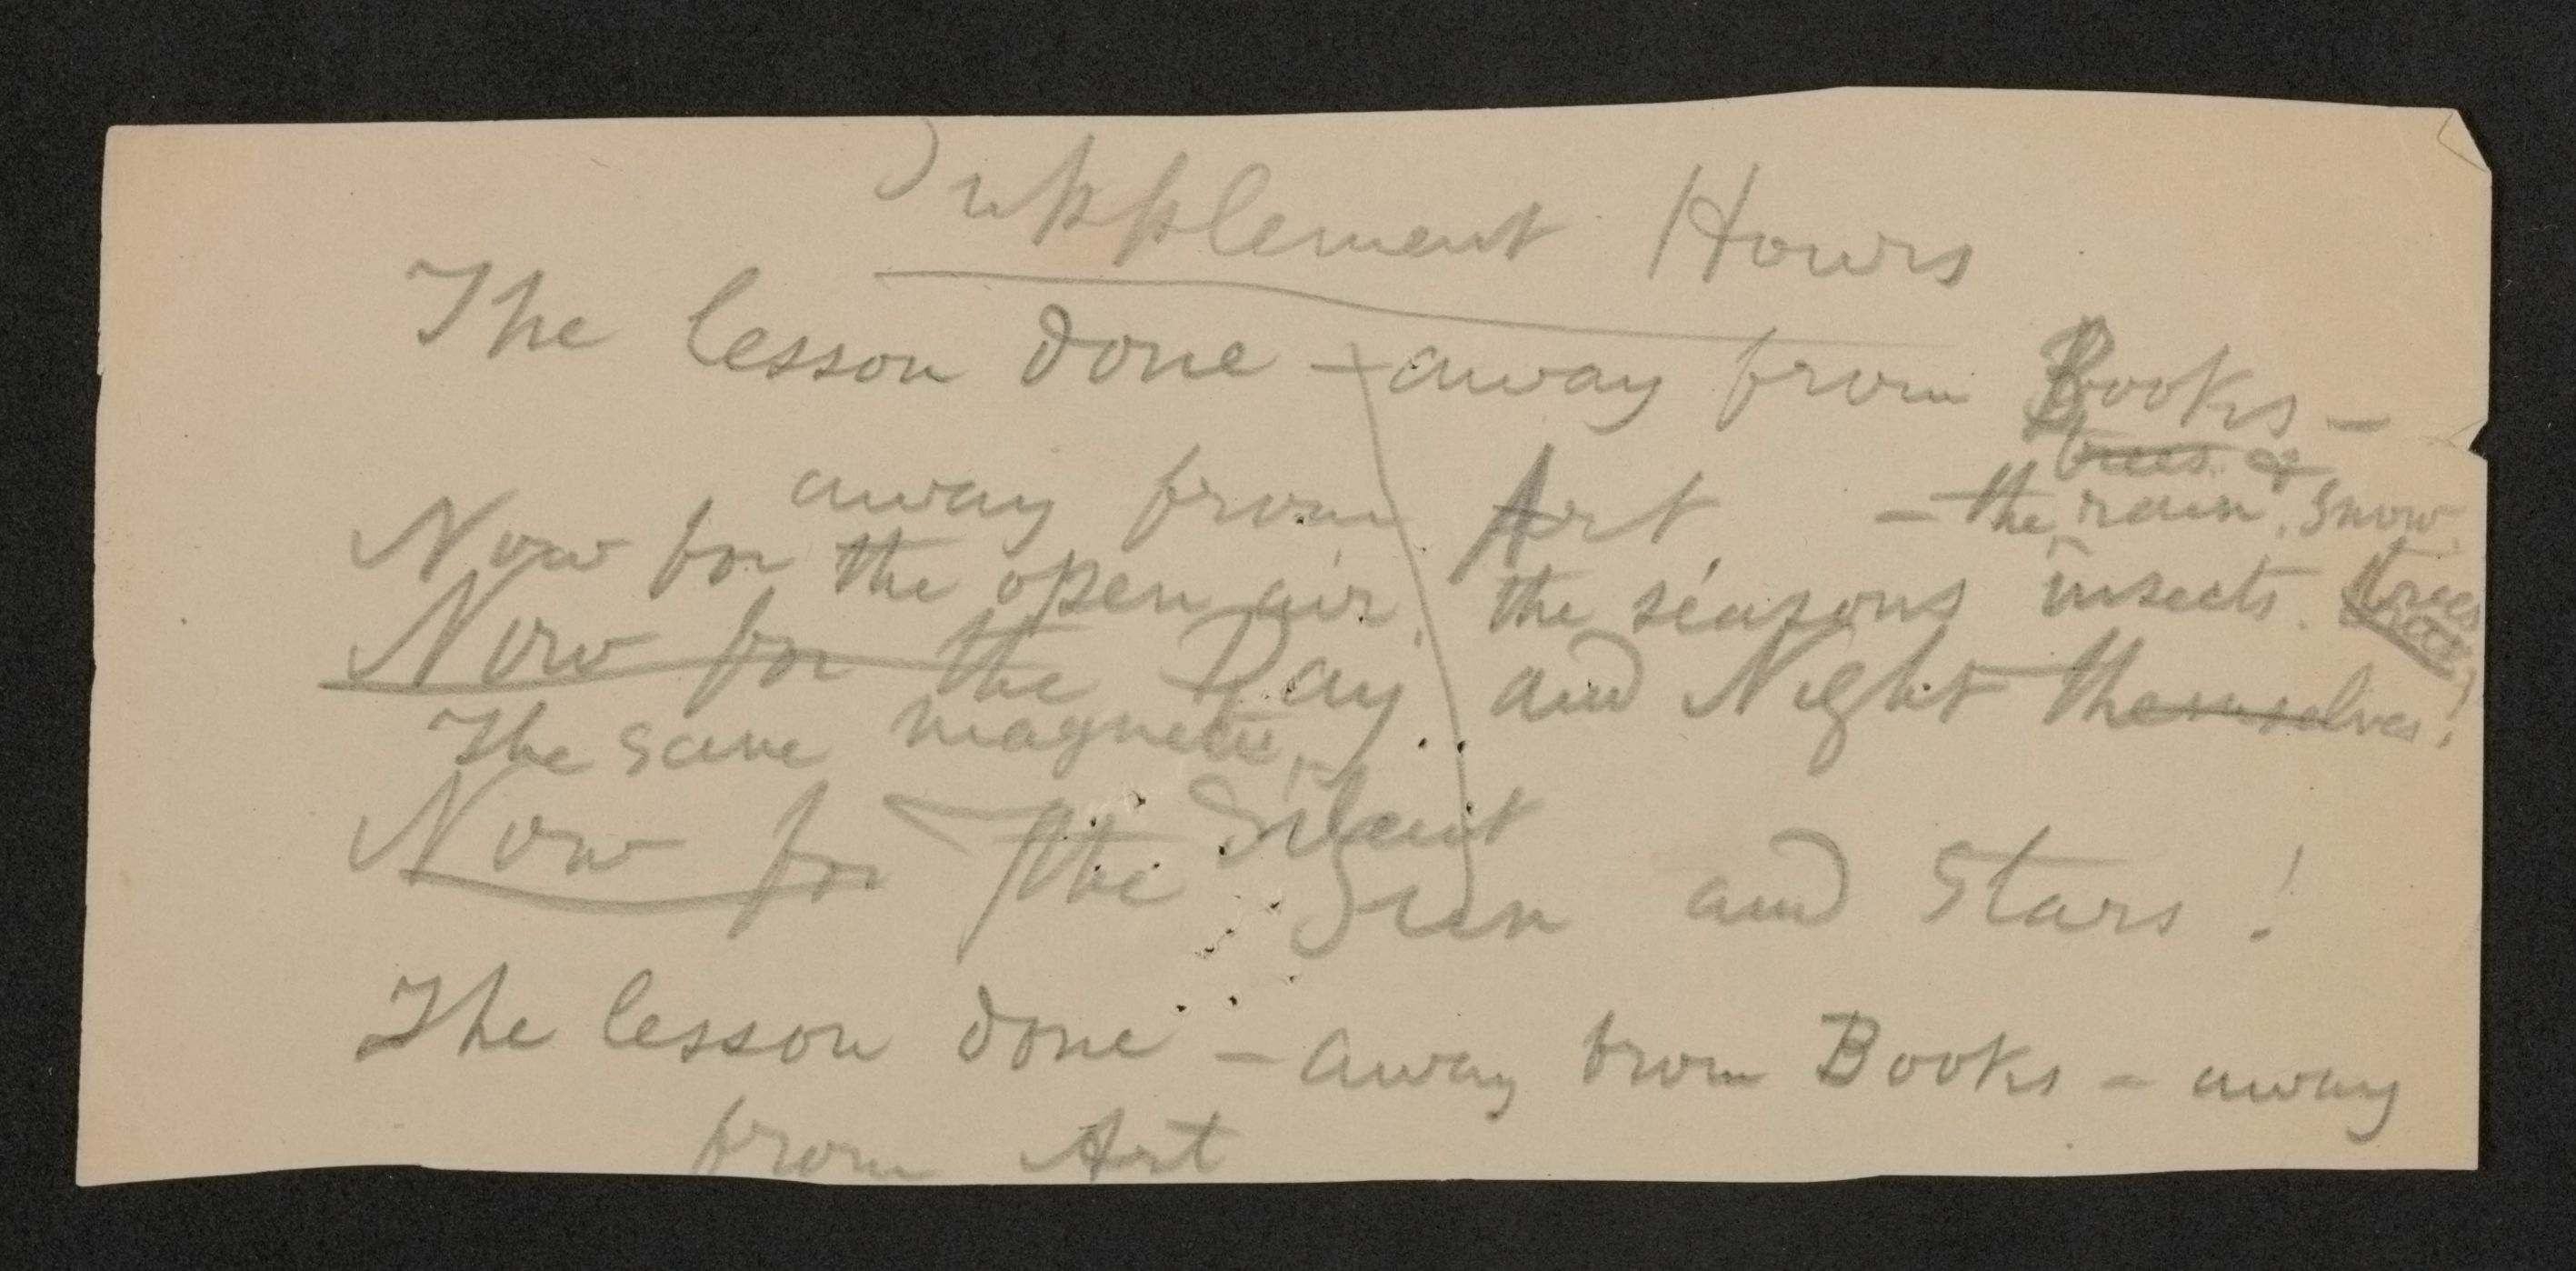 Supplement Hours
The lesson done – away from Books –
away from Art
trees &
– the rain, snow,
Now for the open air, the seasons insects. trees
Now for the Day and Night themselves!
The sane magnetic,
Silent
Now for The Sun and Stars!
The lesson done – away from Books – away
from Art